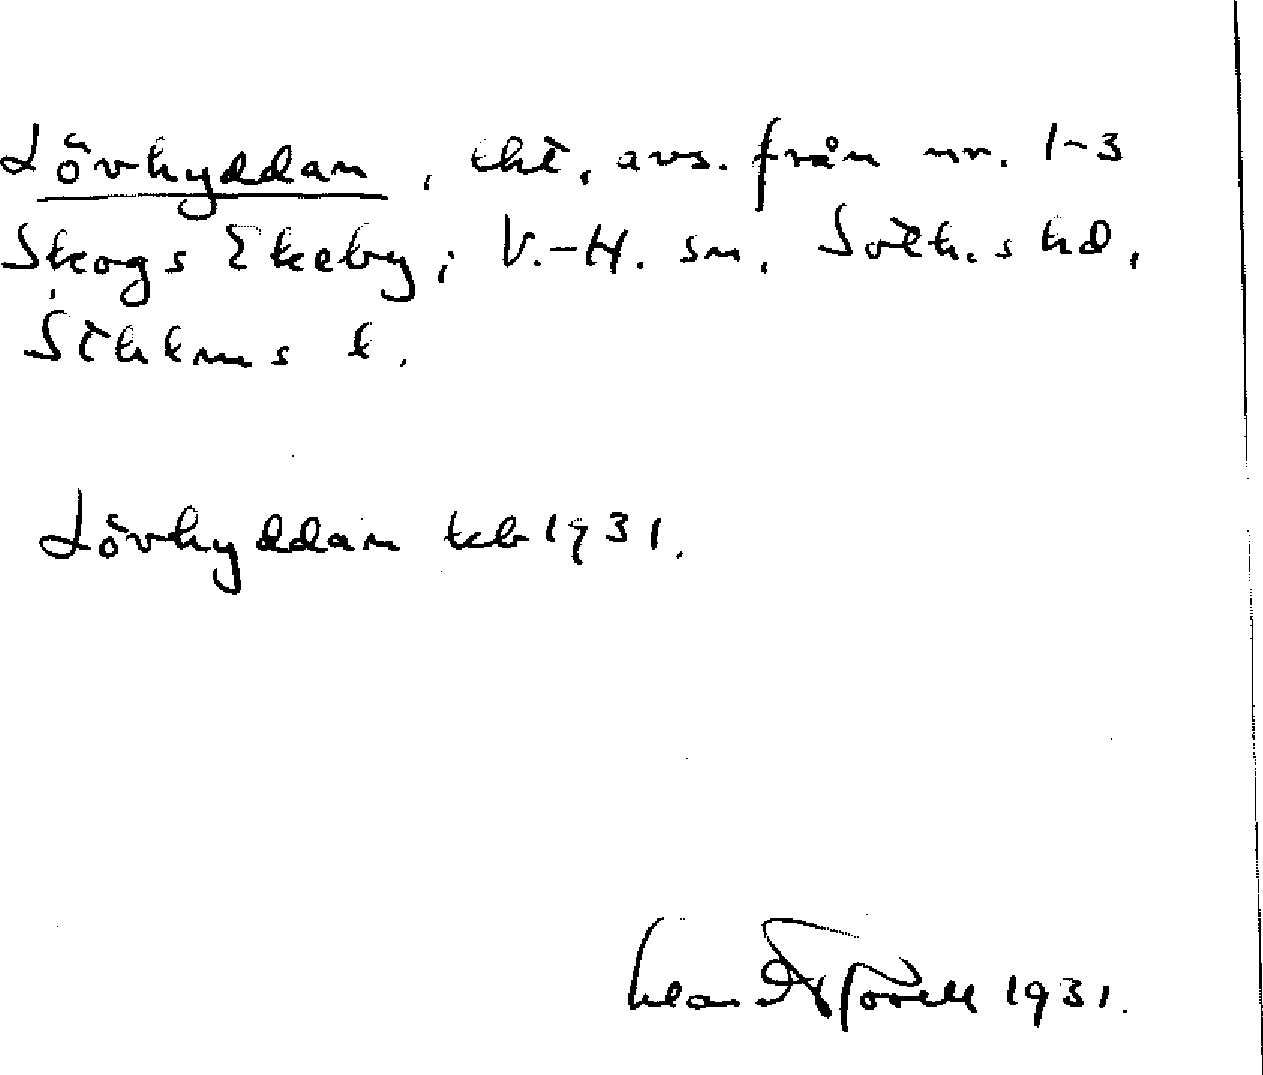 Lövhyddan, lht, avs. från nr. 1-3
Skogs Ekeby, V.-H. sn, Soth.s hd,
Sthlms l.
Lövhyddan tcb 1931.
1931.